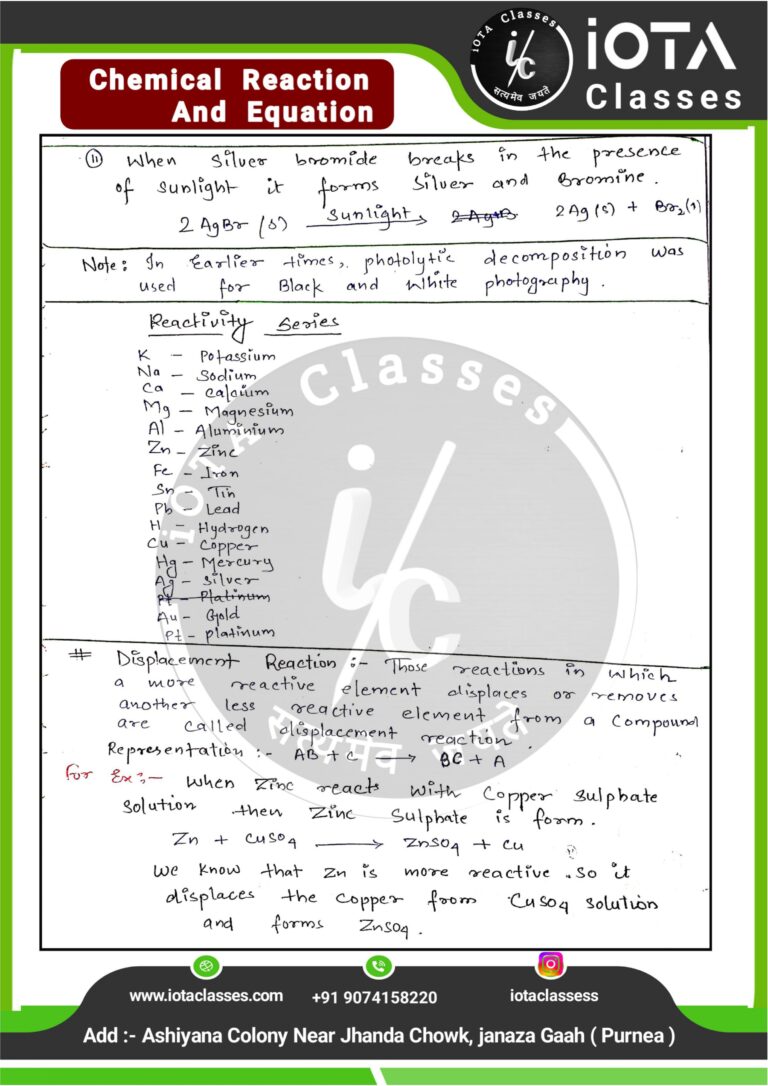 iOTA Classes
i/C
सत्यमेव जयते
iOTA
Classes
Chemical Reaction
And Equation
(ii) When silver bromide breaks in the presence
of sunlight it forms silver and Bromine.
2 AgBr (s) —Sunlight→ 2Ag(s) + Br₂(l)
Note: In Earlier times, photolytic decomposition was
used for Black and White photography.
Reactivity Series
K – Potassium
Na – Sodium
Ca – Calcium
Mg – Magnesium
Al – Aluminium
Zn – Zinc
Fe – Iron
Sn – Tin
Pb – Lead
H – Hydrogen
Cu – Copper
Hg – Mercury
Ag – Silver
Pt – Platinum
Au – Gold
Pt – platinum
iOTA Classes
i/C
सत्यमेव जयते
# Displacement Reaction :- Those reactions in which
a more reactive element displaces or removes
another less reactive element from a compound
are called displacement reaction.
Representation :- AB + C ⟶ BC + A
For Ex:- When Zinc reacts with Copper Sulphate
solution then Zinc Sulphate is form.
Zn + CuSO₄ ⟶ ZnSO₄ + Cu
We know that Zn is more reactive. So it
displaces the copper from CuSO₄ solution
and forms ZnSO₄.
www.iotaclasses.com +91 9074158220 iotaclassess
Add :- Ashiyana Colony Near Jhanda Chowk, janaza Gaah ( Purnea )